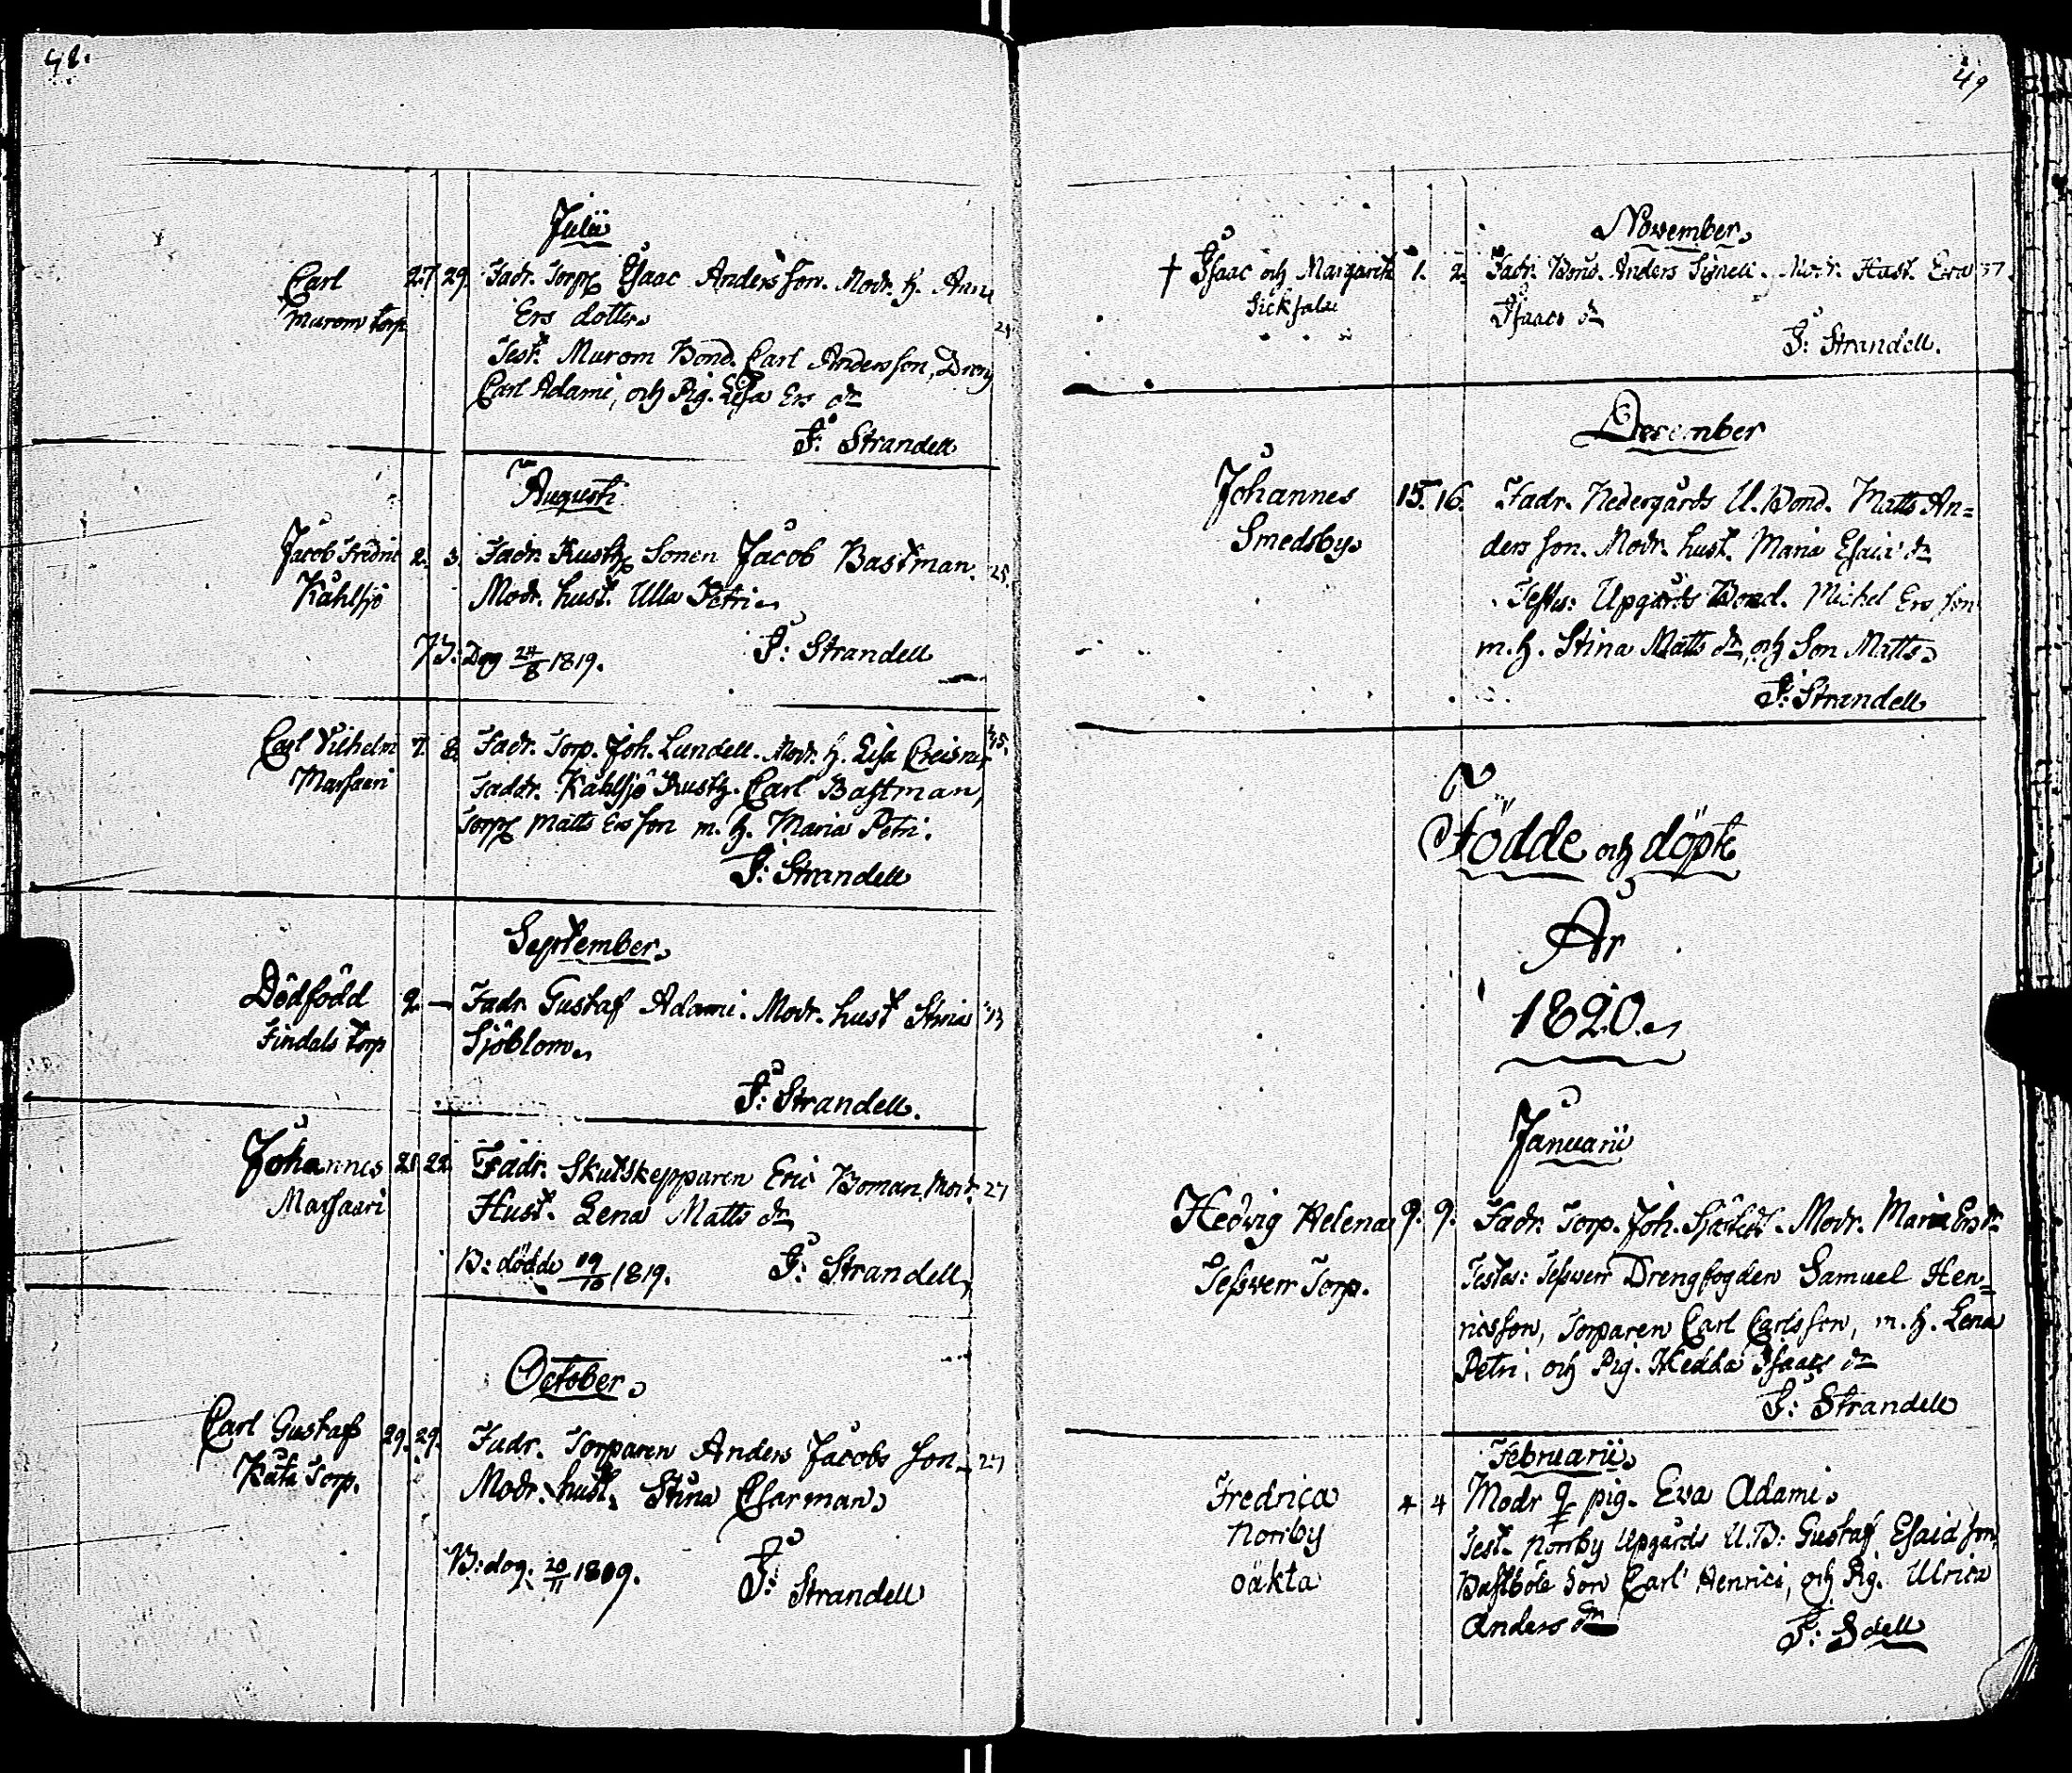 48.
Julii
Carl 27. 29. Fadr. Torp. Isaac Andersson. Modr. h. Anna
Murom torp Ers dotter
Test. Murom Bond. Carl Andersson, Dreng
Carl Adami, och Pig. Lisa Ers dr
J: Strandell
Augusti
Jacob Fredric 2. 3. Fadr. Rusth. Sonen Jacob Bastman. 25.
Kåhlsjö Modr. hust. Ulla Petri
B: Dog 24/8 1819. J: Strandell
Carl Vilhelm 7. 8. Fadr. Torp. Joh. Lundell. Modr. h. Lisa
Marsaari Faddr. Kåhlsjö Rusth. Carl Bastman,
Torp. Matts Ersson m. h. Maria Petri.
J: Strandell
September
Dödfödd 9. — Fadr. Gustaf Adami. Modr. hust Stina
Findals torp Sjöblom
J: Strandell.
Johannes 21. 22. Fadr. Skutskepparen Eric Boman, Modr. 27
Marsaari Hust. Lena Matts dr
B: dödde 19/10 1819. J: Strandell
October
Carl Gustaf 29. 29. Fadr. Torparen Anders Jacobs son 27
Kåta Torp. Modr. hust. Stina Charman
B: dog. 20/11 1819. J: Strandell
49
November
† Isaac och Margareta 1. 2. Fadr. Bond. Anders Signeli. Modr. Hust. Eva 37.
Sicksalu Isaacs dr
J: Strandell.
December
Johannes 15. 16. Fadr. Nedergårds U. Bond. Matts An=
Smedsby dersson. Modr. hust. Maria Esaiæ dr
Testes: Upgårds Bond. Michel Ersson
m. h. Stina Matts dr, och Son Matts
J: Strandell
Födde och döpte
År
1820.
Januarii
Hedvig Helena 9. 9. Fadr. Torp. Joh. Sjöstedt. Modr. Maria Ers dr
Tessverr Torp. Testes: Tessverr Drengfogden Samuel Hen=
ricsson, Torparen Carl Carlsson, m. h. Lena
Petri, och Pig. Hedda Isaacs dr
J: Strandell
Februarii
Fredrica 4 4 Modr pig. Eva Adami
Norrby Test. Norrby Upgårds U.B: Gustaf Esaidson,
oäkta Bastböle Son Carl Henrici, och Pig. Ulrica
Anders dr J: Sdell